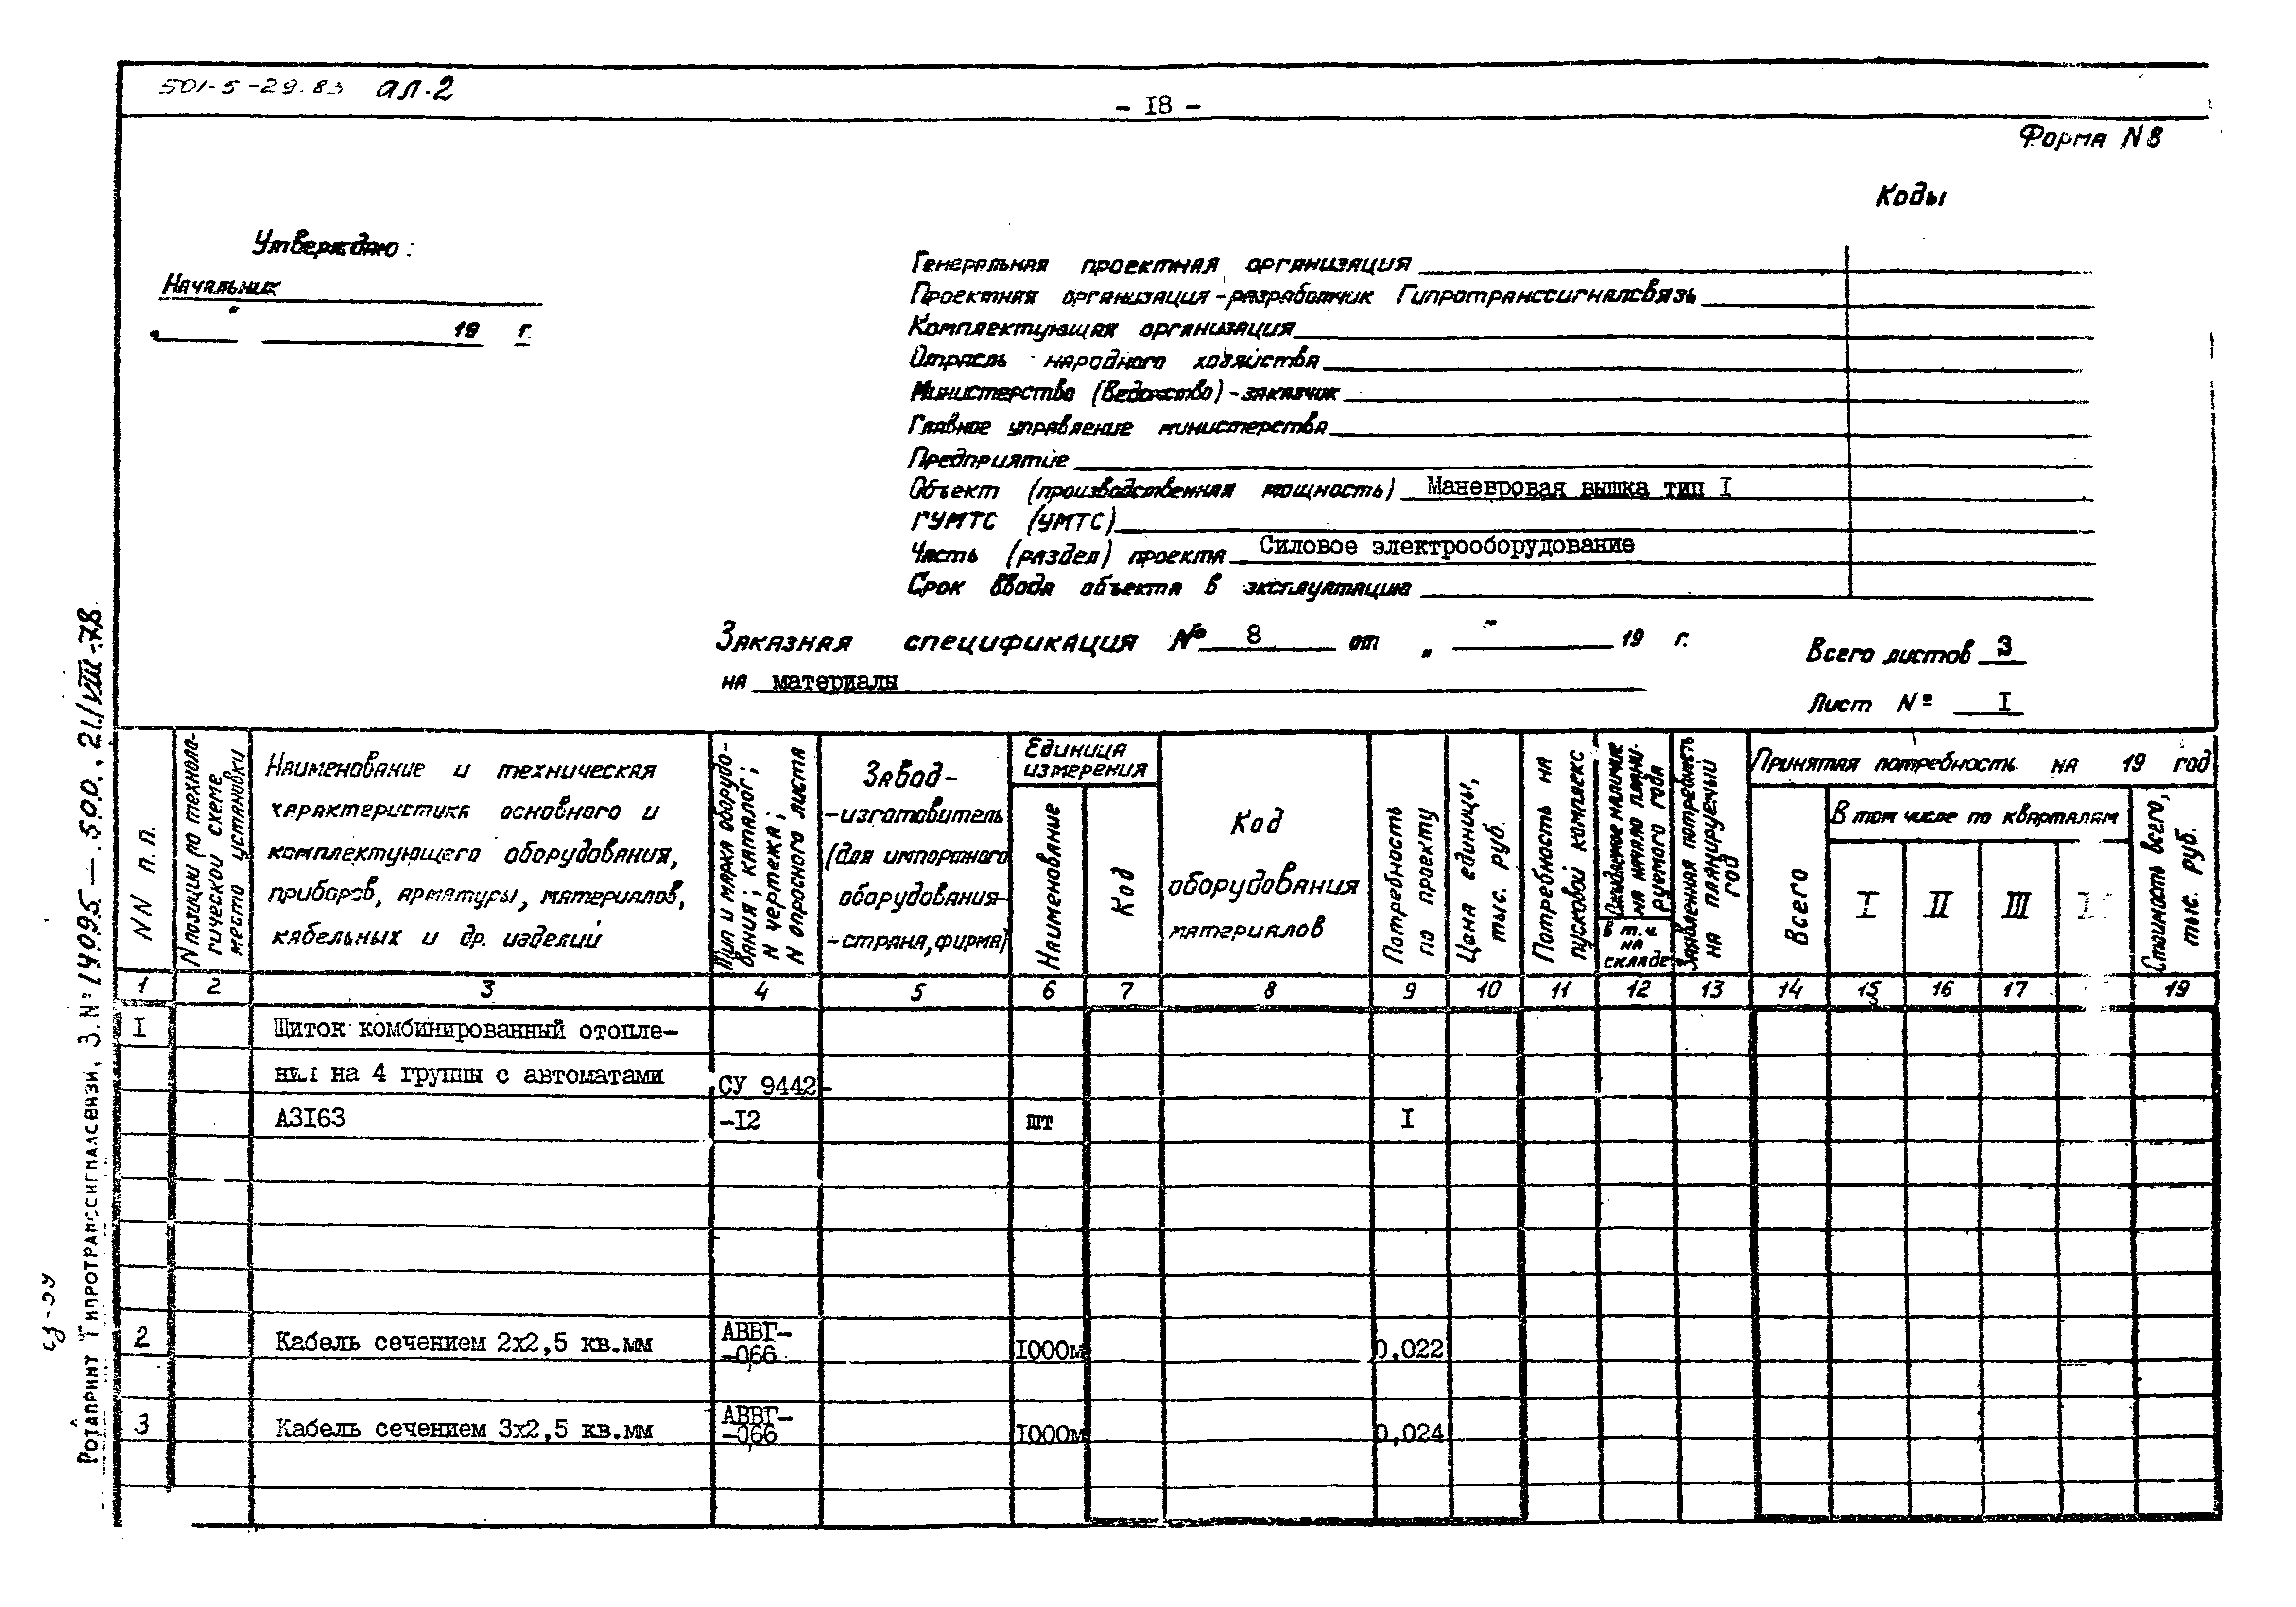 501-5-29.83 ал.2
- I8 -
Форма N 8
Коды
Утверждаю:
Начальник
" " 19 г.
Генеральная проектная организация
Проектная организация-разработчик Гипротранссигналсвязь
Комплектующая организация
Отрасль народного хозяйства
Министерство (Ведомство)-заказчик
Главное управление министерства
Предприятие
Объект (производственная мощность) Маневровая вышка тип I
ГУМТС (УМТС)
Часть (раздел) проекта Силовое электрооборудование
Срок ввода объекта в эксплуатацию
Заказная спецификация № 8 от " " 19 г.
на материалы
Всего листов 3
Лист № I
NN п.п.
N позиции по техноло-
гической схеме
место установки
Наименование и техническая
характеристика основного и
комплектующего оборудования,
приборов, арматуры, материалов,
кабельных и др. изделий
Тип и марка оборудо-
вания; каталог;
N чертежа;
N опросного листа
Завод-
-изготовитель
(для импортного
оборудования-
-страна, фирма)
Единица
измерения
Наименование
Код
Код
оборудования
материалов
Потребность
по проекту
Цена единицы,
тыс. руб.
Потребность на
пусковой комплекс
Ожидаемое наличие
на начало плани-
руемого года
в т.ч.
на
складе
Заявленная потребность
на планируемый
год
Принятая потребность на 19 год
Всего
В том числе по кварталам
I II III
Стоимость всего,
тыс. руб.
1 2 3 4 5 6 7 8 9 10 11 12 13 14 15 16 17 19
I Щиток комбинированный отопле-
ния на 4 группы с автоматами СУ 9442-
А3I63 -I2 шт I
2 Кабель сечением 2х2,5 кв.мм АВВГ-
-0,66 I000м 0,022
3 Кабель сечением 3х2,5 кв.мм АВВГ-
-0,66 I000м 0,024
Ротапринт Гипротранссигналсвязи, З.№ 14095 — 500, 21/VIII-78